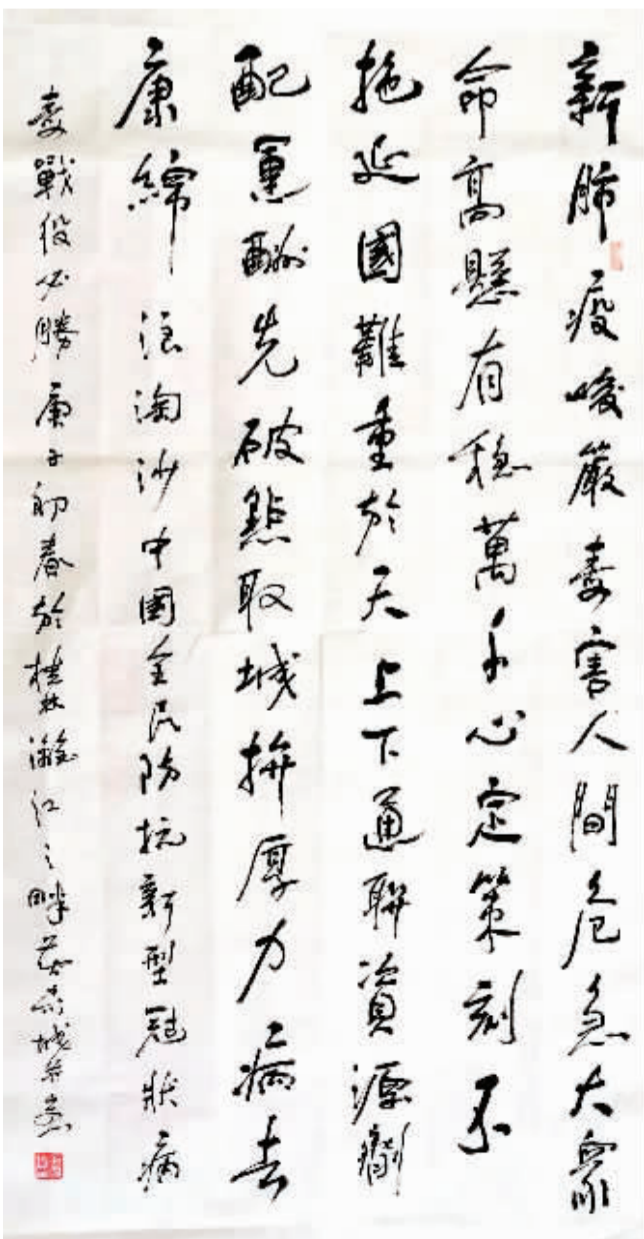 新肺疫峻嚴毒害人間危急大衆
命高懸有穩萬千心定策刻不
拖延國難重於天上下通聯資源劑
配酬先破點取城拚厚力病去
康綿 浪淘沙中國全民防抗新型冠狀病
毒戰役必勝 庚子初春於桂林灕江之畔城并書